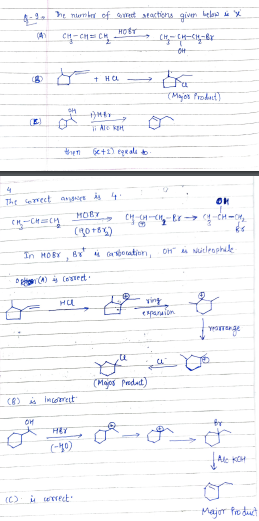 Q-2 = The number of correct reactions given below is x
(A) CH3-CH=CH2 HOBr CH3-CH-CH2-Br
OH
(B) + HCl Cl
(Major Product)
OH i) HBr
ii) Alc KOH
then (x+1) equals to.
4
The correct answer is 4.
OH
CH3-CH=CH2 HOBr CH3-CH-CH2-Br → CH3-CH-CH2
(H2O+Br2) Br
In HOBr, Br+ is carbocation, OH- is Nucleophile
(A) is correct.
HCl ring
expansion
rearrange
Cl Cl-
(Major Product)
(B) is Incorrect
OH HBr Br
(-H2O)
Alc KOH
(C) is correct.
Major Product